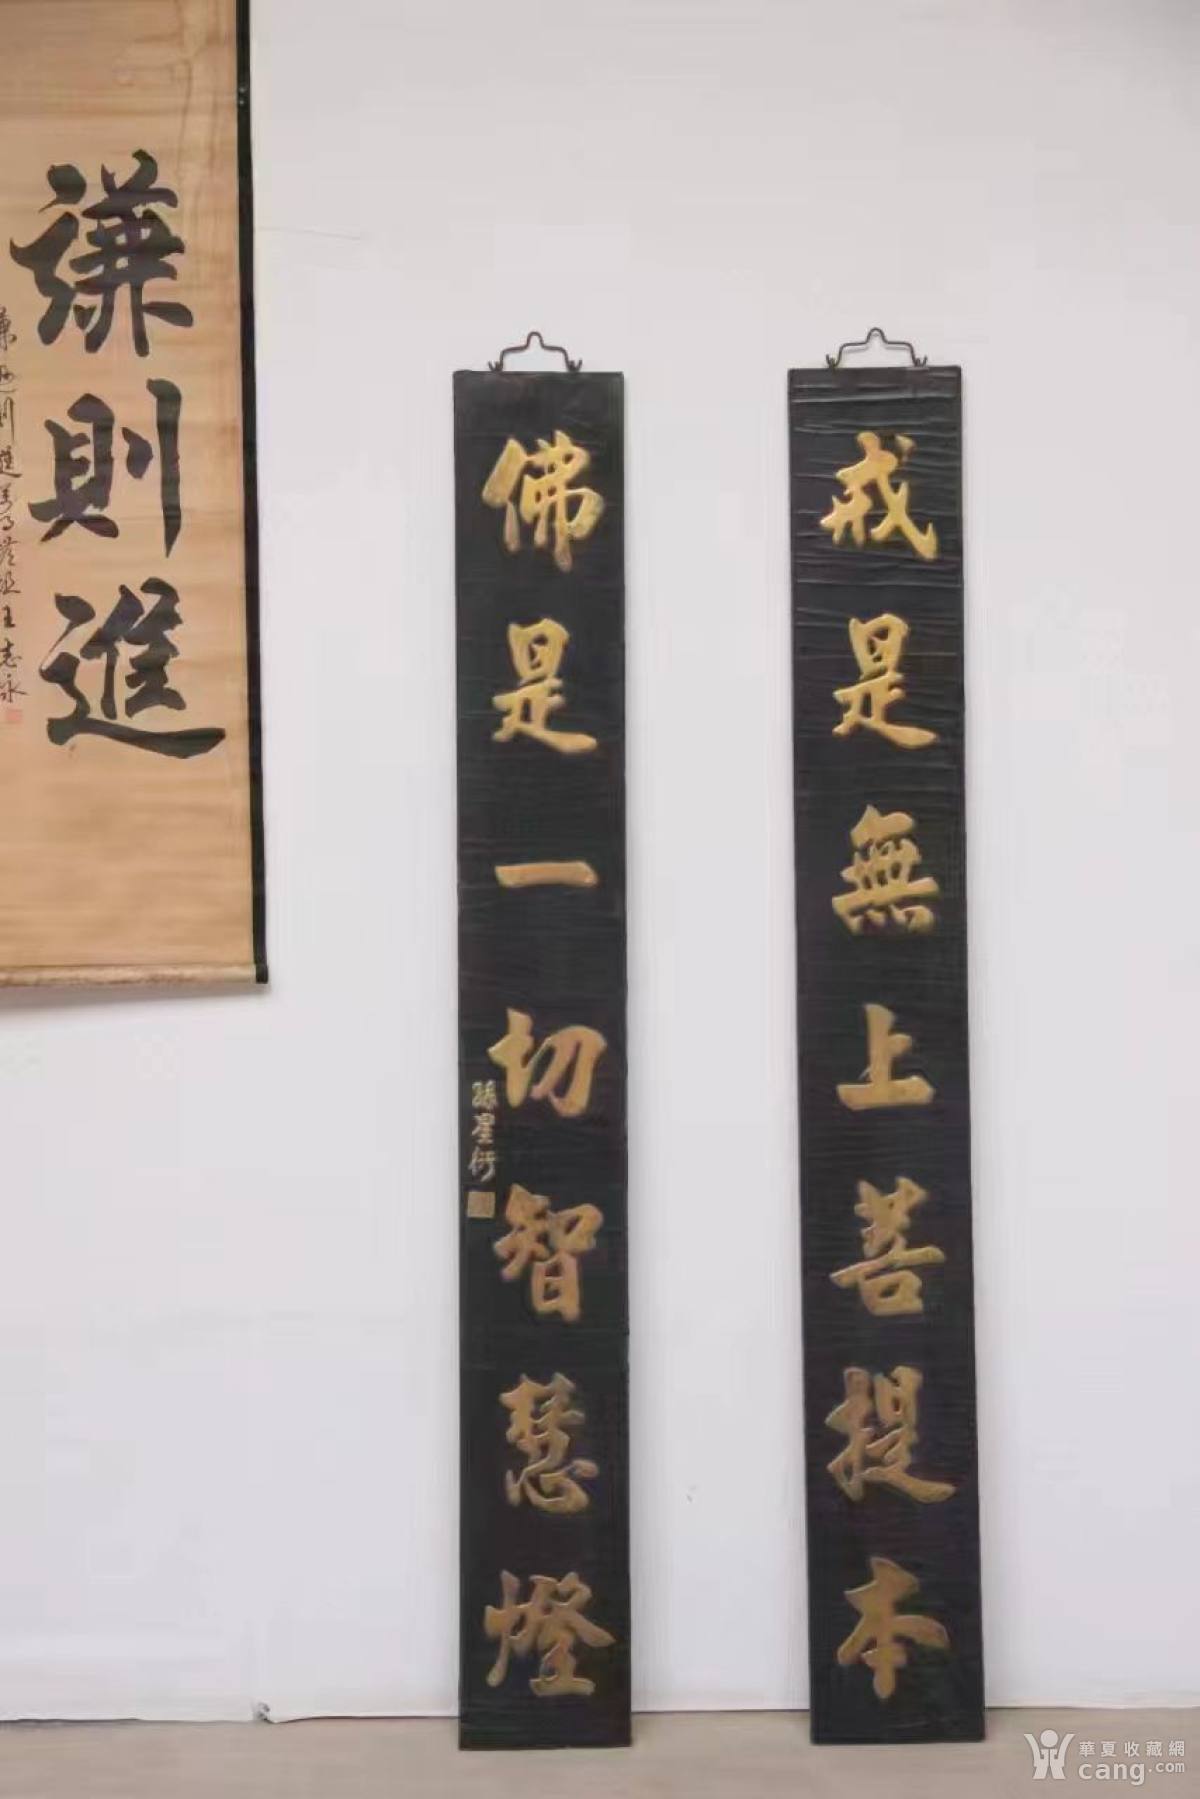 戒是無上菩提本
佛是一切智慧燈
孫星衍
謙則進
王志泳
華夏收藏網
cang.com